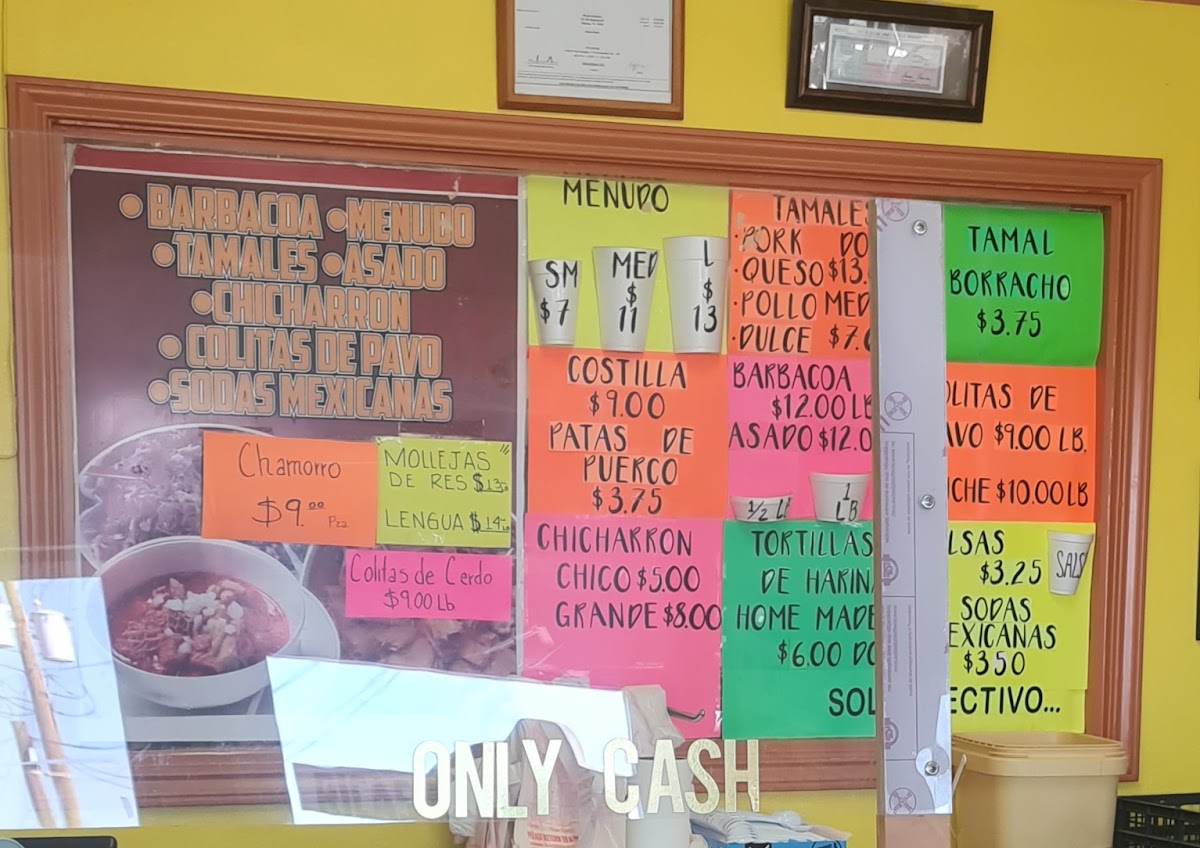 •BARBACOA •MENUDO
•TAMALES •ASADO
•CHICHARRON
•COLITAS DE PAVO
•SODAS MEXICANAS
Chamorro
$9.00 Pza
MOLLEJAS
DE RES $13
LENGUA $14
Colitas de Cerdo
$9.00 Lb
MENUDO
SM
$7
MED
$
11
L
$
13
COSTILLA
$9.00
PATAS DE
PUERCO
$3.75
CHICHARRON
CHICO $5.00
GRANDE $8.00
TAMALES
•PORK DO
•QUESO $13.
•POLLO MED
•DULCE $7.
BARBACOA
$12.00 LB
ASADO $12.0
1/2 L
1
LB
TORTILLAS
DE HARINA
HOME MADE
$6.00 DO
SOL
ECTIVO...
TAMAL
BORRACHO
$3.75
OLITAS DE
AVO $9.00 LB.
CHE $10.00 LB
LSAS
$3.25
SALS
SODAS
EXICANAS
$3.50
ONLY CASH